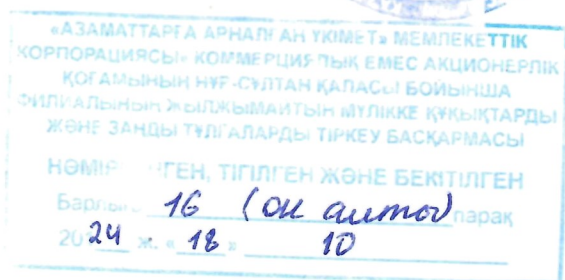 «АЗАМАТТАРҒА АРНАЛҒАН ҮКІМЕТ» МЕМЛЕКЕТТІК
КОРПОРАЦИЯСЫ» КОММЕРЦИЯЛЫҚ ЕМЕС АКЦИОНЕРЛІК
ҚОҒАМЫНЫҢ НҰР-СҰЛТАН ҚАЛАСЫ БОЙЫНША
ФИЛИАЛЫНЫҢ ЖЫЛЖЫМАЙТЫН МҮЛІККЕ ҚҰҚЫҚТАРДЫ
ЖӘНЕ ЗАҢДЫ ТҰЛҒАЛАРДЫ ТІРКЕУ БАСҚАРМАСЫ
ТІГІЛГЕН ЖӘНЕ БЕКІТІЛГЕН
16 (он алты) парақ
2024 ж. «18» 10